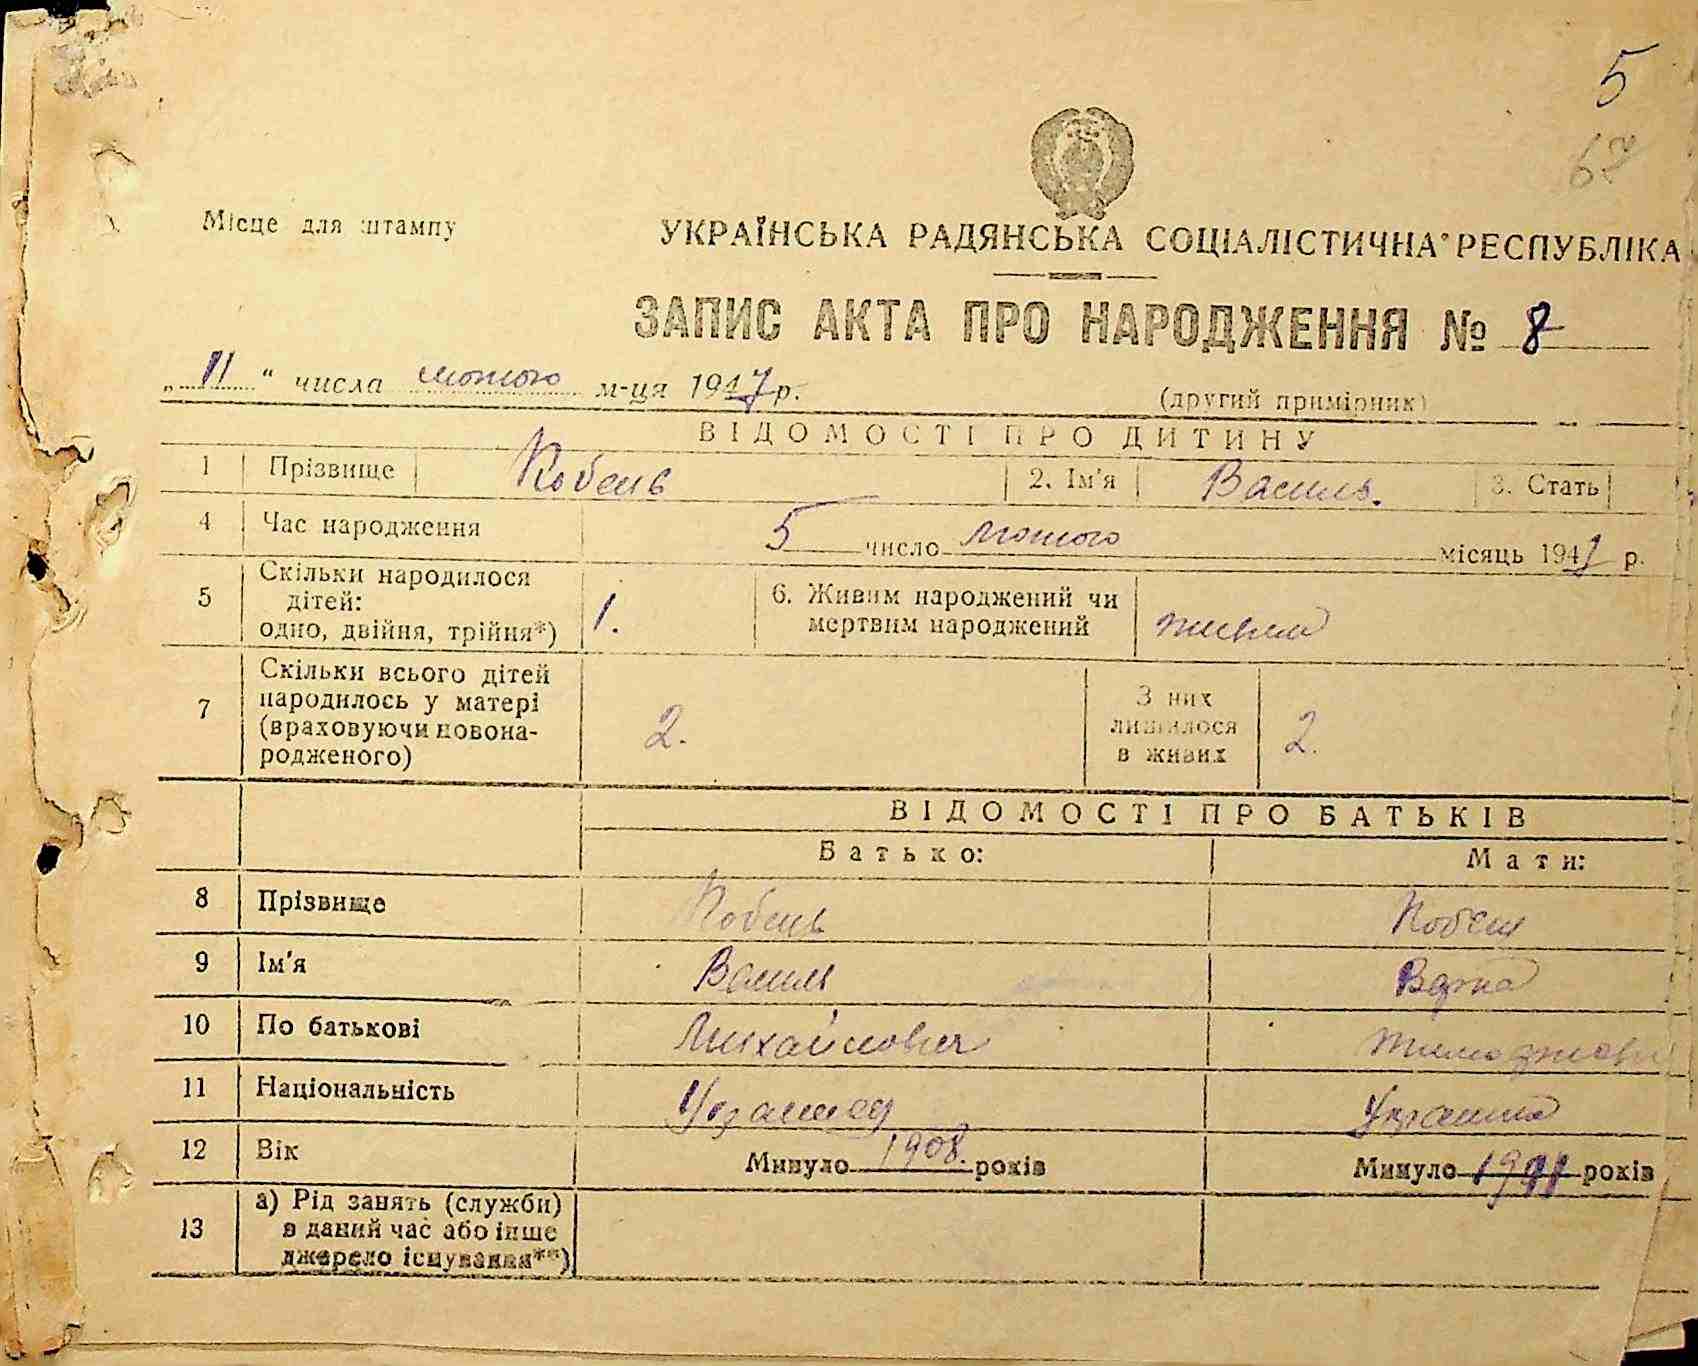 5
67
Місце для штампу
УКРАЇНСЬКА РАДЯНСЬКА СОЦІАЛІСТИЧНА РЕСПУБЛІКА
ЗАПИС АКТА ПРО НАРОДЖЕННЯ № 8
„11“ числа лютого м-ця 1947 р.
(другий примірник)
ВІДОМОСТІ ПРО ДИТИНУ
1 Прізвище Кобень 2. Ім'я Василь. 3. Стать
4 Час народження 5 число лютого місяць 194 р.
5 Скільки народилося дітей: одно, двійня, трійня*) 1. 6. Живим народжений чи мертвим народжений живим
7 Скільки всього дітей народилось у матері (враховуючи новонародженого) 2. З них лишилося в живих 2.
ВІДОМОСТІ ПРО БАТЬКІВ
Батько: Мати:
8 Прізвище Кобень Кобень
9 Ім'я Василь
10 По батькові Михайлович
11 Національність
12 Вік Минуло 1908. років Минуло 1911 років
13 а) Рід занять (служби) в даний час або інше джерело існування**)